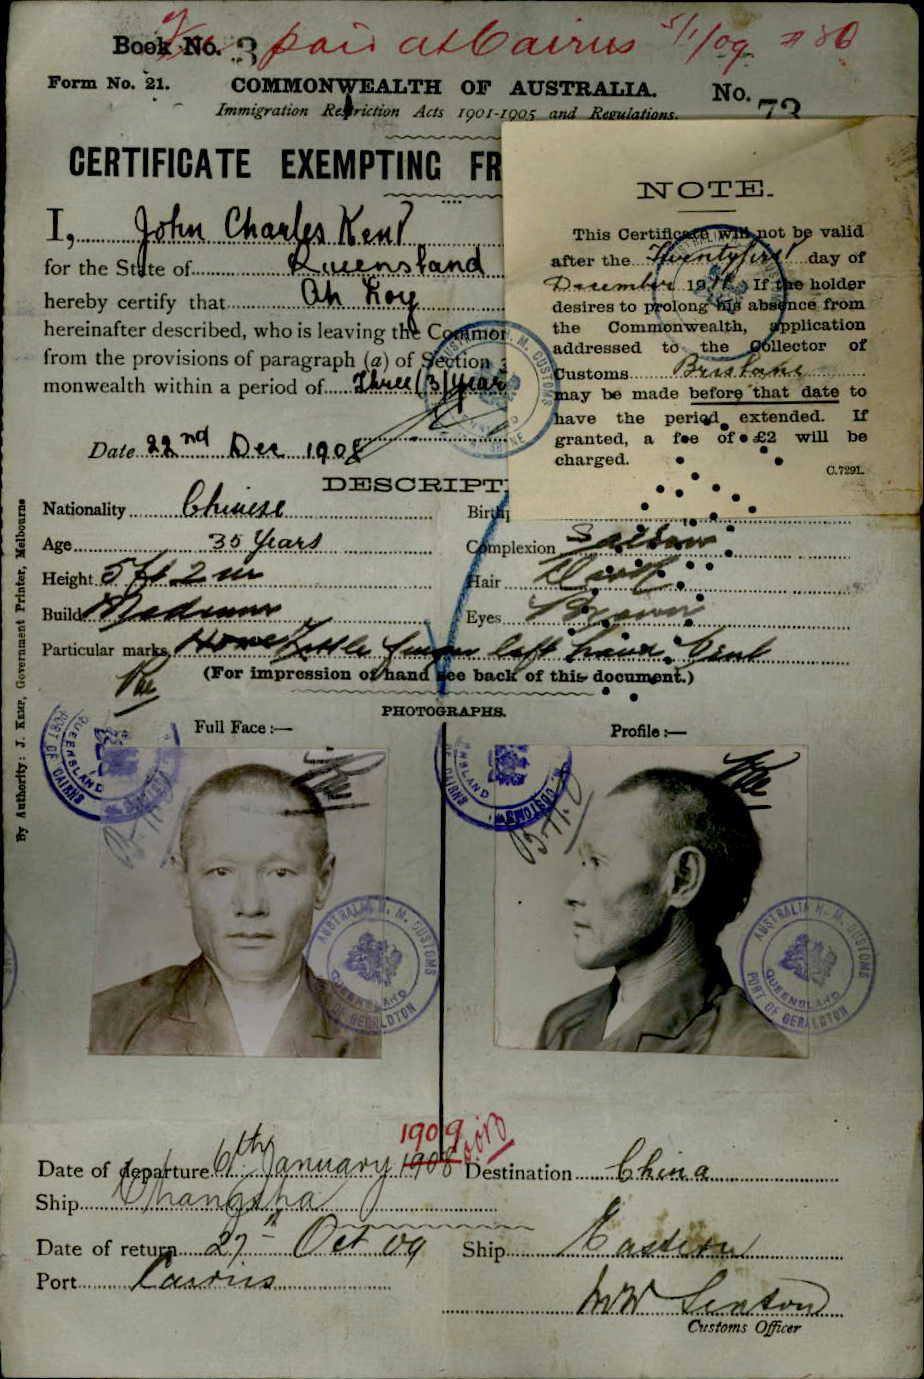 Book No. 3 paid at Cairns 5/1/09
Form No. 21. COMMONWEALTH OF AUSTRALIA. No. 73
Immigration Restriction Acts 1901-1905 and Regulations.
CERTIFICATE EXEMPTING FR
I, John Charles Kent
for the State of Queensland
hereby certify that Ah Hoy
hereinafter described, who is leaving the Common
from the provisions of paragraph (a) of Section
monwealth within a period of Three (3) Year
Date 22nd Dec 1908
NOTE.
This Certificate will not be valid
after the Twentyfirst day of
December 1911. If the holder
desires to prolong his absence from
the Commonwealth, application
addressed to the Collector of
Customs Brisbane
may be made before that date to
have the period extended. If
granted, a fee of £2 will be
charged.
C.7291.
DESCRIPT
Nationality Chinese Birthp
Age 35 Years Complexion Sallow
Height 5 ft 2 in Hair Dark
Build Medium Eyes Brown
Particular marks Little finger left hand bent
(For impression of hand see back of this document.)
PHOTOGRAPHS.
Full Face:— Profile:—
PORT OF CAIRNS QUEENSLAND
PORT OF CAIRNS QUEENSLAND CUSTOMS
AUSTRALIA H. M. CUSTOMS QUEENSLAND PORT OF GERALDTON
AUSTRALIA H. M. CUSTOMS QUEENSLAND PORT OF GERALDTON
1909
Date of departure 6th January 1908 Destination China
Ship Changsha
Date of return 27th Oct 09 Ship Eastern
Port Cairns
Customs Officer
By Authority: J. KEMP, Government Printer, Melbourne